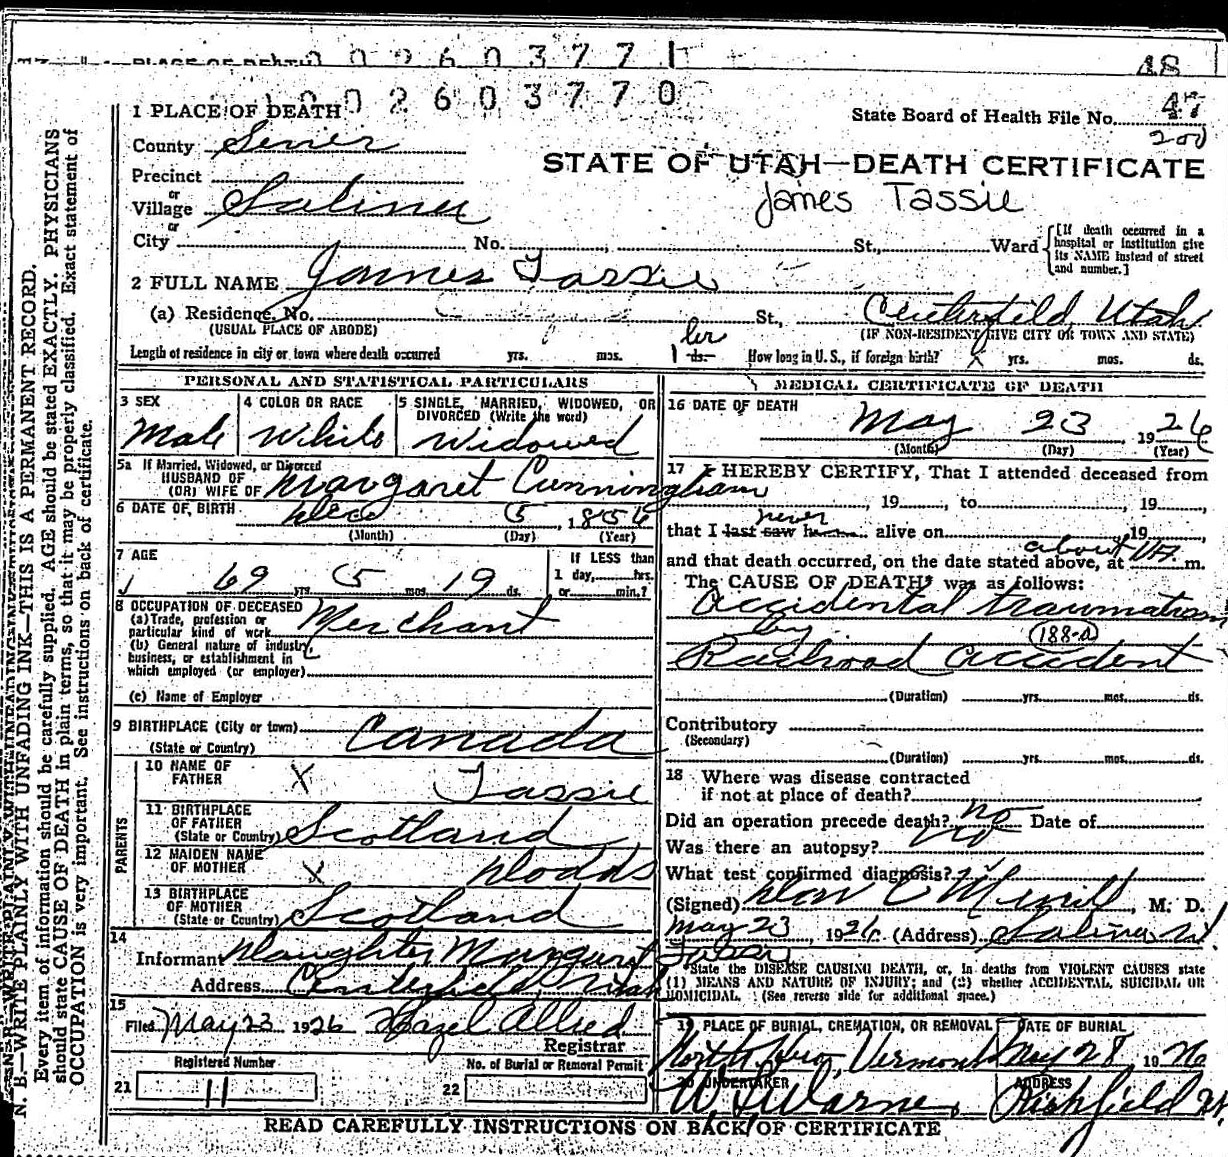 PLACE OF DEATH 0 0 2 6 0 3 7 7 1
48
1 0 0 2 6 0 3 7 7 0
1 PLACE OF DEATH
State Board of Health File No. 47
200
County Sevier
STATE OF UTAH—DEATH CERTIFICATE
Precinct
James Tassie
or
Village Salina
or
City No. St., Ward
[If death occurred in a hospital or institution give its NAME instead of street and number.]
2 FULL NAME James Tassie
(a) Residence. No. St., Centerfield Utah
(USUAL PLACE OF ABODE)
(IF NON-RESIDENT GIVE CITY OR TOWN AND STATE)
Length of residence in city or town where death occurred yrs. mos. 1 hr ds. How long in U. S., if foreign birth? X yrs. mos. ds.
PERSONAL AND STATISTICAL PARTICULARS
3 SEX
Male
4 COLOR OR RACE
White
5 SINGLE, MARRIED, WIDOWED, OR DIVORCED (Write the word)
Widowed
5a If Married, Widowed, or Divorced
HUSBAND OF
(OR) WIFE OF Margaret Cunningham
6 DATE OF BIRTH Dec 5, 1856
(Month) (Day) (Year)
7 AGE
69 yrs. 5 mos. 19 ds.
If LESS than
1 day, hrs.
or min.?
8 OCCUPATION OF DECEASED
(a) Trade, profession or
particular kind of work Merchant
(b) General nature of industry,
business, or establishment in
which employed (or employer)
(c) Name of Employer
9 BIRTHPLACE (City or town)
(State or Country) Canada
PARENTS
10 NAME OF
FATHER X Tassie
11 BIRTHPLACE
OF FATHER
(State or Country) Scotland
12 MAIDEN NAME
OF MOTHER X Dodds
13 BIRTHPLACE
OF MOTHER
(State or Country) Scotland
14
Informant Daughter Margaret Tassie
Address Centerfield Utah
15
Filed May 23 1926 Hazel Allred
Registrar
Registered Number
21 11
No. of Burial or Removal Permit
22
MEDICAL CERTIFICATE OF DEATH
16 DATE OF DEATH
May 23, 1926
(Month) (Day) (Year)
17 I HEREBY CERTIFY, That I attended deceased from
, 19, to 19
never
that I last saw h alive on 19
about
and that death occurred, on the date stated above, at m.
The CAUSE OF DEATH* was as follows:
Accidental traumatism
by 188-a
Railroad accident
(Duration) yrs. mos. ds.
Contributory
(Secondary)
(Duration) yrs. mos. ds.
18 Where was disease contracted
if not at place of death?
Did an operation precede death? no Date of
Was there an autopsy? no
What test confirmed diagnosis?
(Signed) Don C Merrill, M. D.
May 23, 1926 (Address) Salina Ut
*State the DISEASE CAUSING DEATH, or, in deaths from VIOLENT CAUSES state
(1) MEANS AND NATURE OF INJURY; and (2) whether ACCIDENTAL, SUICIDAL OR
HOMICIDAL. (See reverse side for additional space.)
19 PLACE OF BURIAL, CREMATION, OR REMOVAL
North Hero, Vermont
DATE OF BURIAL
May 28 1926
20 UNDERTAKER
W. S. Warner
ADDRESS
Richfield Ut
READ CAREFULLY INSTRUCTIONS ON BACK OF CERTIFICATE
N. B.—WRITE PLAINLY WITH UNFADING INK—THIS IS A PERMANENT RECORD.
Every item of information should be carefully supplied. AGE should be stated EXACTLY. PHYSICIANS
should state CAUSE OF DEATH in plain terms, so that it may be properly classified. Exact statement of
OCCUPATION is very important. See instructions on back of certificate.